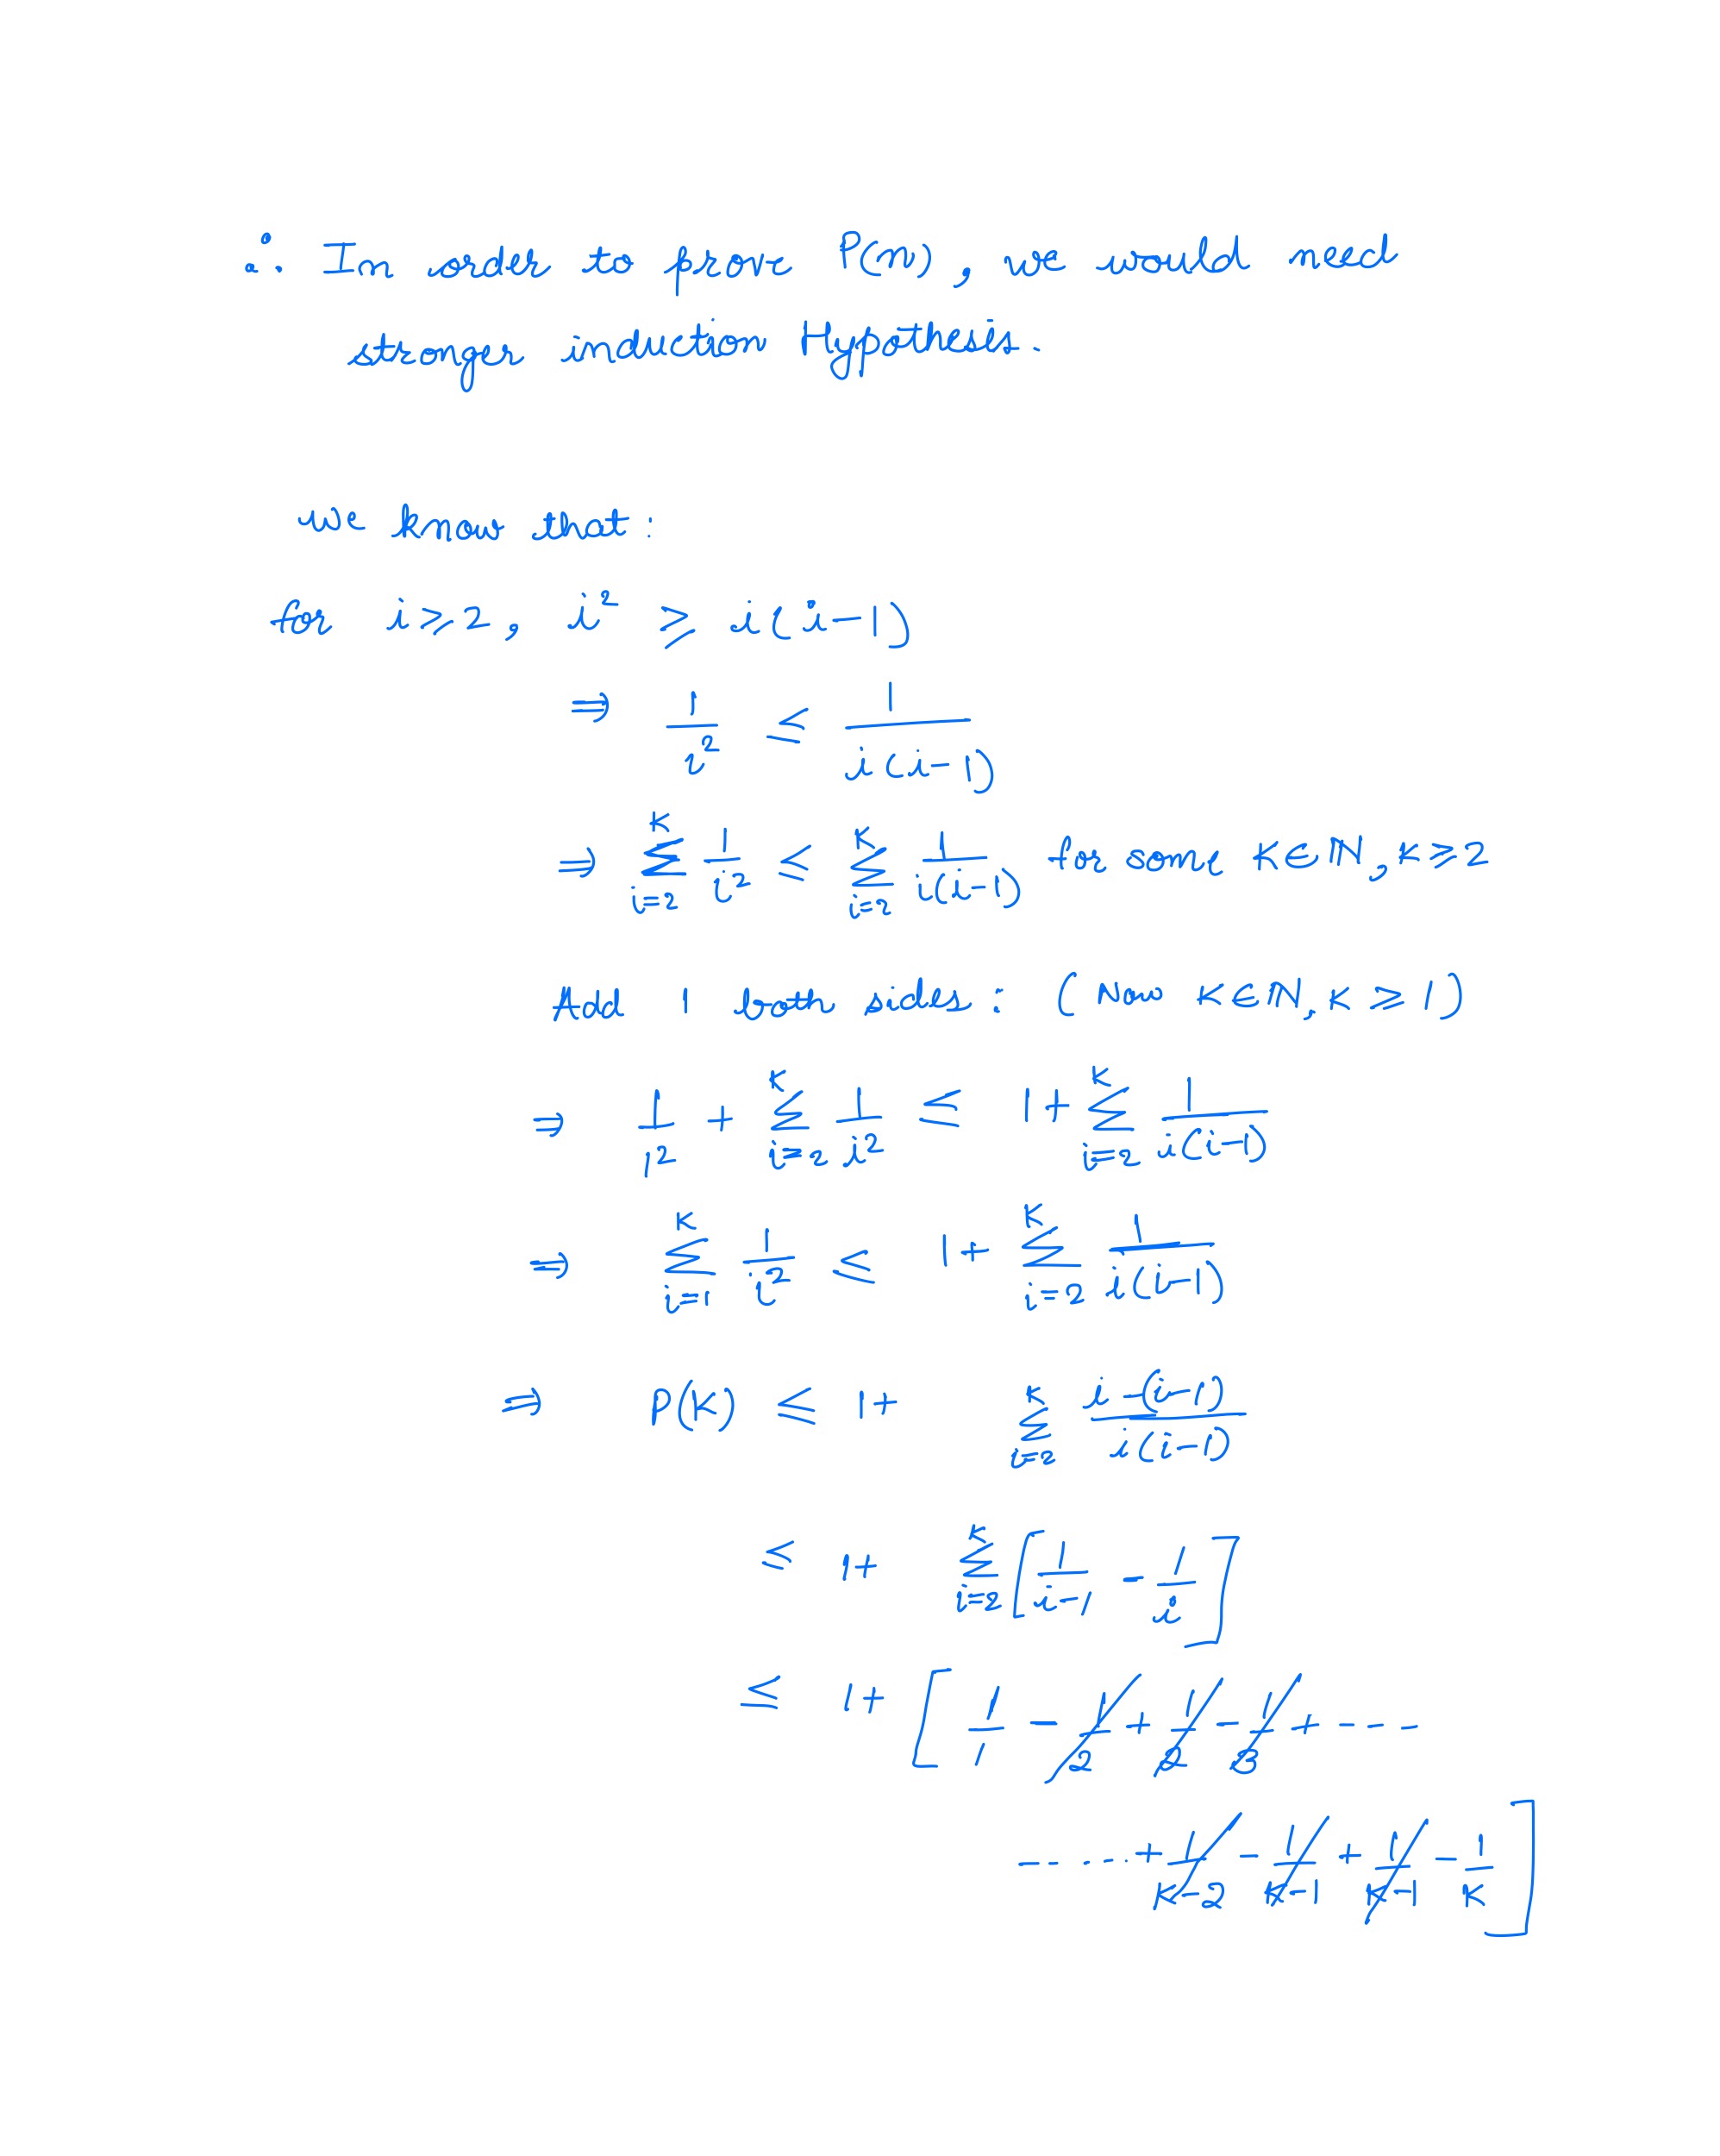 ∴ In order to prove P(n), we would need
stronger induction Hypothesis.
we know that:
for i ≥ 2, i² ≥ i(i-1)
⇒ 1/i² ≤ 1/(i(i-1))
⇒ ∑_{i=2}^{K} 1/i² ≤ ∑_{i=2}^{K} 1/(i(i-1)) for some K∈ℕ, K ≥ 2
Add 1 both sides: (Now K∈ℕ, K ≥ 1)
⇒ 1/1² + ∑_{i=2}^{K} 1/i² ≤ 1+ ∑_{i=2}^{K} 1/(i(i-1))
⇒ ∑_{i=1}^{K} 1/i² ≤ 1+ ∑_{i=2}^{K} 1/(i(i-1))
⇒ P(K) ≤ 1+ ∑_{i=2}^{K} (i-(i-1))/(i(i-1))
≤ 1+ ∑_{i=2}^{K} [1/(i-1) - 1/i]
≤ 1+ [1/1 - 1/2 + 1/2 - 1/3 + ----
------ + 1/(K-2) - 1/(K-1) + 1/(K-1) - 1/K]